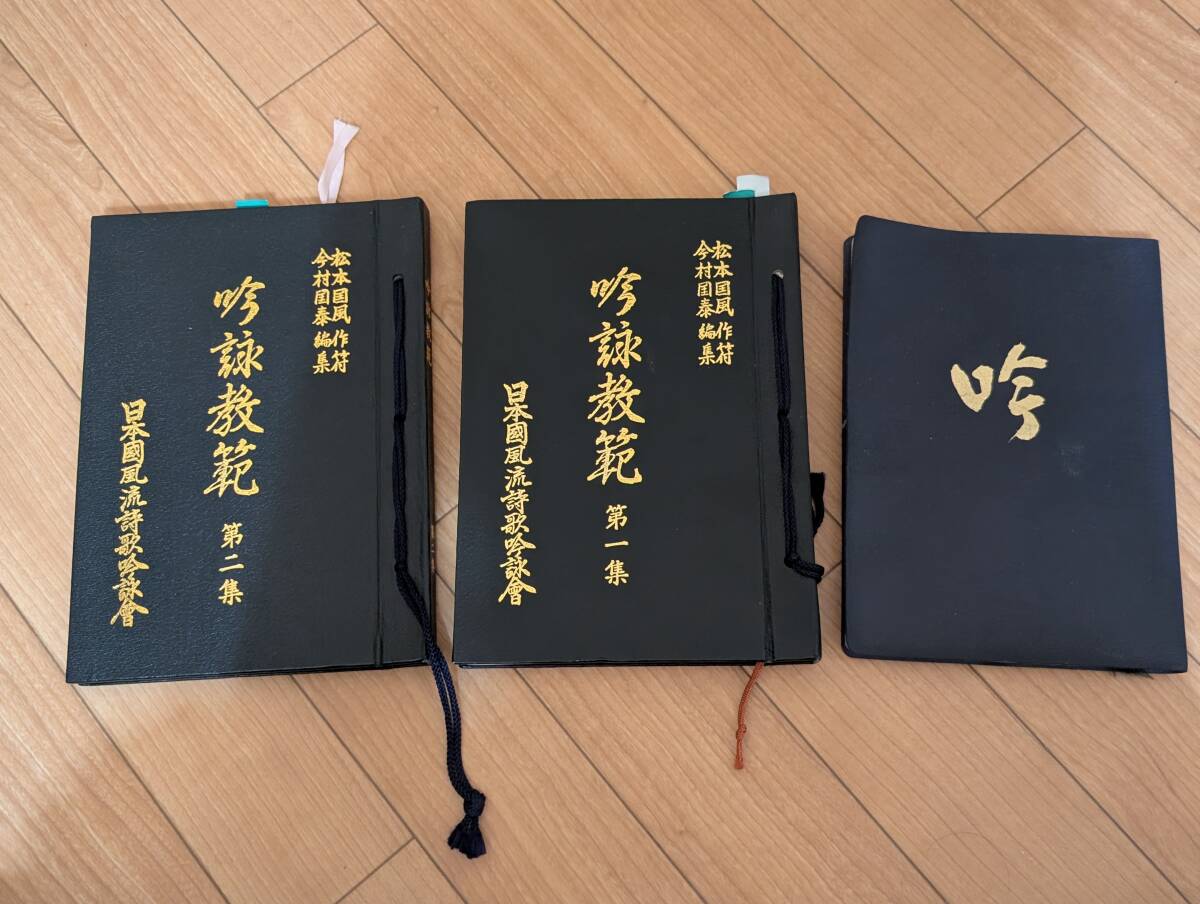 松本国風 作符
今村国泰 編集
吟詠教範 第二集
日本國風流詩歌吟詠會
松本国風 作符
今村国泰 編集
吟詠教範 第一集
日本國風流詩歌吟詠會
吟